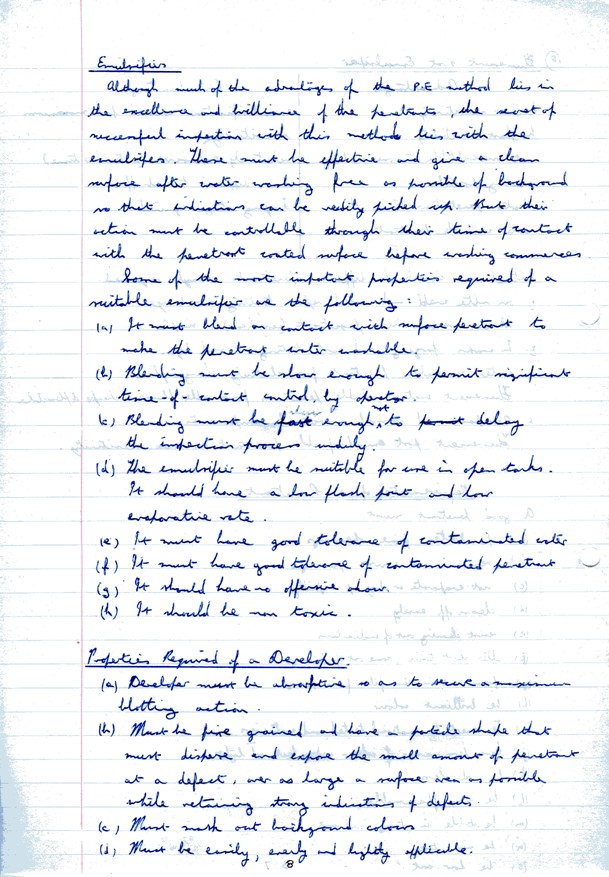 Emulsifiers
Although much of the advantages of the P.E method lies in
the excellence and brilliance of the penetrants, the secret of
successful inspection with this method lies with the
emulsifiers. These must be effective and give a clean
surface after water washing free as possible of background
so that indications can be readily picked up. But their
action must be controllable through their time of contact
with the penetrant coated surface before washing commences.
Some of the most important properties required of a
suitable emulsifier are the following:
(a) It must blend on contact with surface penetrant to
make the penetrant water washable.
(b) Blending must be slow enough to permit significant
time-of-contact control, by operator.
(c) Blending must be fast enough, not to permit delay
the inspection process unduly.
(d) The emulsifier must be suitable for use in open tanks.
It should have a low flash point and low
evaporative rate.
(e) It must have good tolerance of contaminated water
(f) It must have good tolerance of contaminated penetrant
(g) It should have no offensive odour.
(h) It should be non toxic.
Properties Required of a Developer.
(a) Developer must be absorptive so as to secure a maximum
blotting action.
(b) Must be fine grained and have a particle shape that
must disperse and expose the small amount of penetrant
at a defect, over as large a surface area as possible
while retaining strong indications of defects.
(c) Must mask out background colours
(d) Must be easily, evenly and lightly applicable.
8